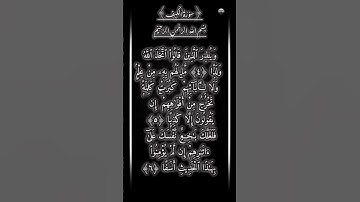 ﴿ سُورَةُ الكَهف ﴾
بِسْمِ اللَّهِ الرَّحْمَٰنِ الرَّحِيمِ
وَيُنذِرَ ٱلَّذِينَ قَالُوا۟ ٱتَّخَذَ ٱللَّهُ
وَلَدًا ﴿٤﴾ مَّا لَهُم بِهِۦ مِنْ عِلْمٍ
وَلَا لِـَٔابَآئِهِمْ كَبُرَتْ كَلِمَةً
تَخْرُجُ مِنْ أَفْوَٰهِهِمْ إِن
يَقُولُونَ إِلَّا كَذِبًا ﴿٥﴾
فَلَعَلَّكَ بَـٰخِعٌ نَّفْسَكَ عَلَىٰٓ
ءَاثَـٰرِهِمْ إِن لَّمْ يُؤْمِنُوا۟
بِهَـٰذَا ٱلْحَدِيثِ أَسَفًا ﴿٦﴾